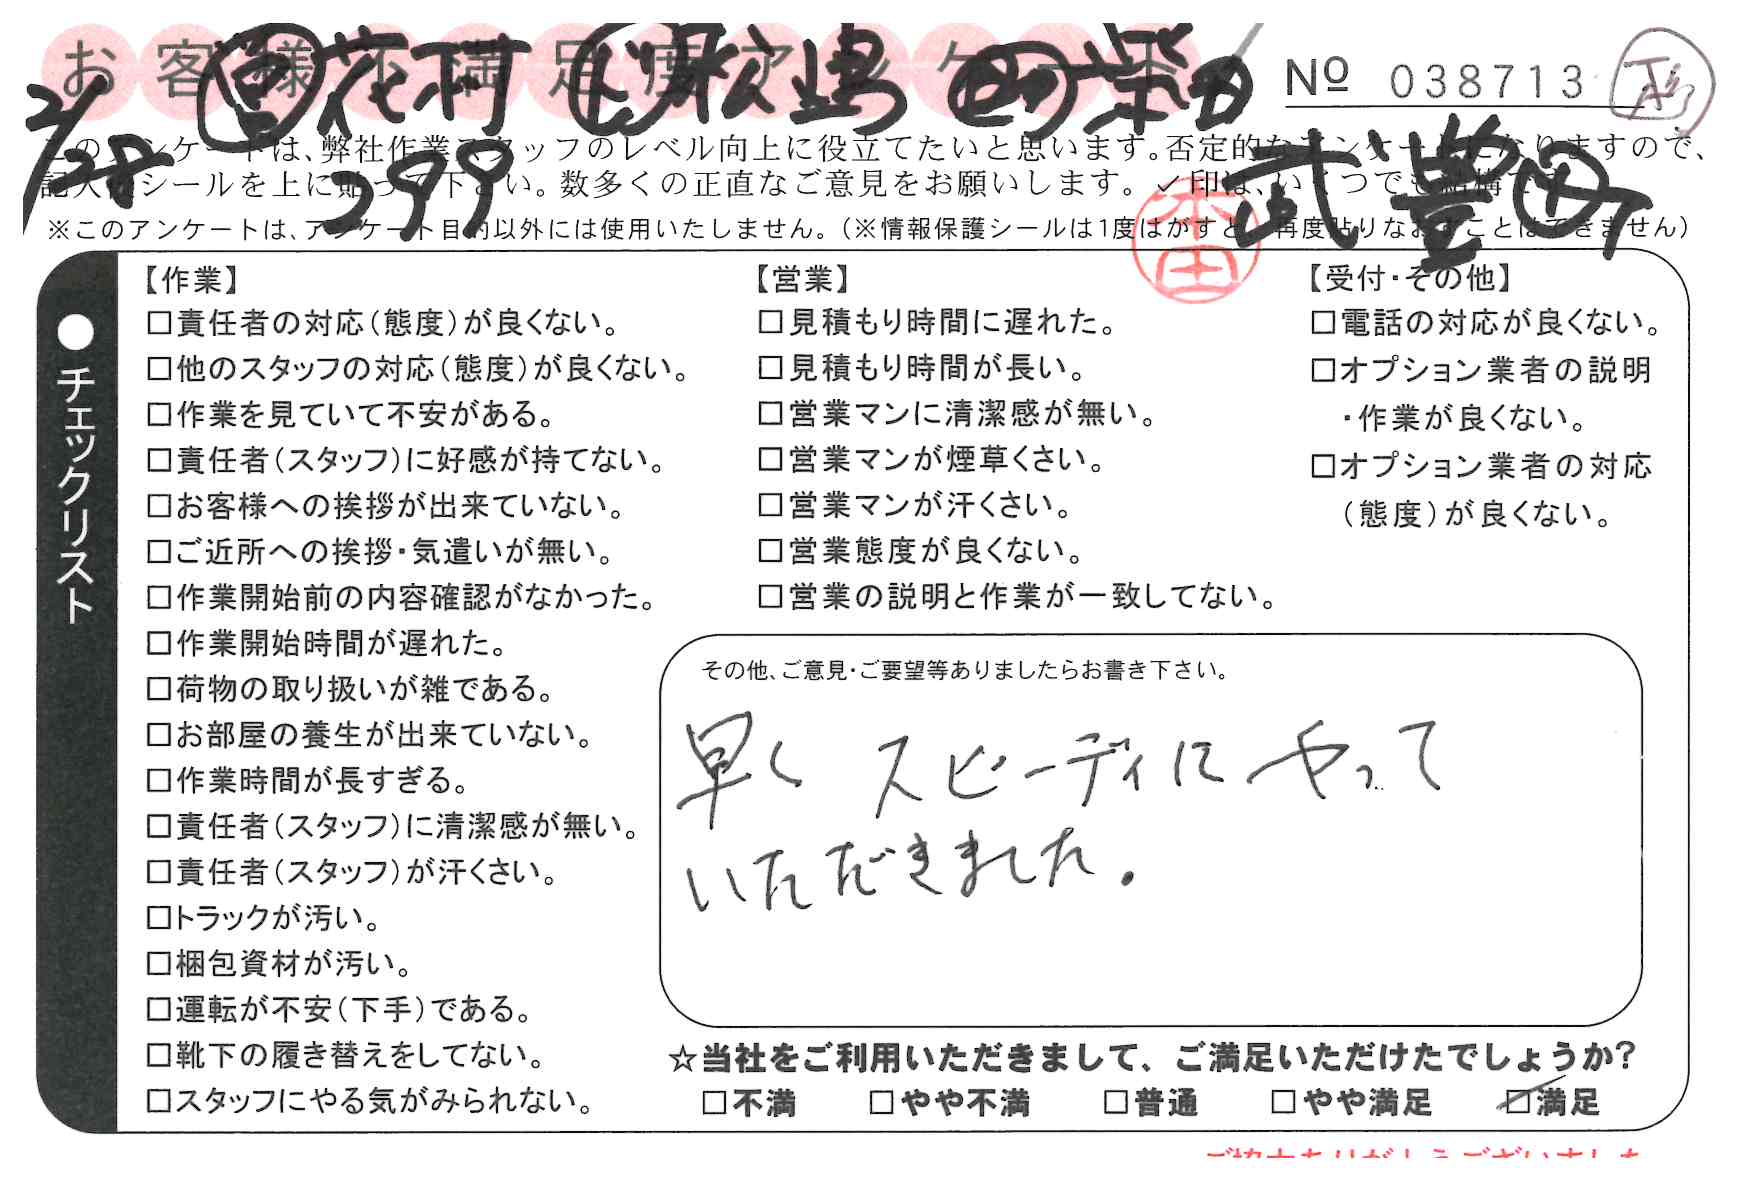 お客様不満足度アンケート
№ 038713
2/28 営 花村 牧島 町 柴田
399
武豊町
このアンケートは、弊社作業スタッフのレベル向上に役立てたいと思います。否定的なアンケートになりますので、
記入後シールを上に貼って下さい。数多くの正直なご意見をお願いします。✓印は、いくつでも結構です。
※このアンケートは、アンケート目的以外には使用いたしません。（※情報保護シールは1度はがすと、再度貼りなおすことはできません）
本田
●チェックリスト
【作業】
□責任者の対応（態度）が良くない。
□他のスタッフの対応（態度）が良くない。
□作業を見ていて不安がある。
□責任者（スタッフ）に好感が持てない。
□お客様への挨拶が出来ていない。
□ご近所への挨拶・気遣いが無い。
□作業開始前の内容確認がなかった。
□作業開始時間が遅れた。
□荷物の取り扱いが雑である。
□お部屋の養生が出来ていない。
□作業時間が長すぎる。
□責任者（スタッフ）に清潔感が無い。
□責任者（スタッフ）が汗くさい。
□トラックが汚い。
□梱包資材が汚い。
□運転が不安（下手）である。
□靴下の履き替えをしてない。
□スタッフにやる気がみられない。
【営業】
□見積もり時間に遅れた。
□見積もり時間が長い。
□営業マンに清潔感が無い。
□営業マンが煙草くさい。
□営業マンが汗くさい。
□営業態度が良くない。
□営業の説明と作業が一致してない。
【受付・その他】
□電話の対応が良くない。
□オプション業者の説明
・作業が良くない。
□オプション業者の対応
（態度）が良くない。
その他、ご意見・ご要望等ありましたらお書き下さい。
早く スピーディに やって
いただきました。
☆当社をご利用いただきまして、ご満足いただけたでしょうか?
□不満 □やや不満 □普通 □やや満足 ☑満足
ご協力ありがとうございました